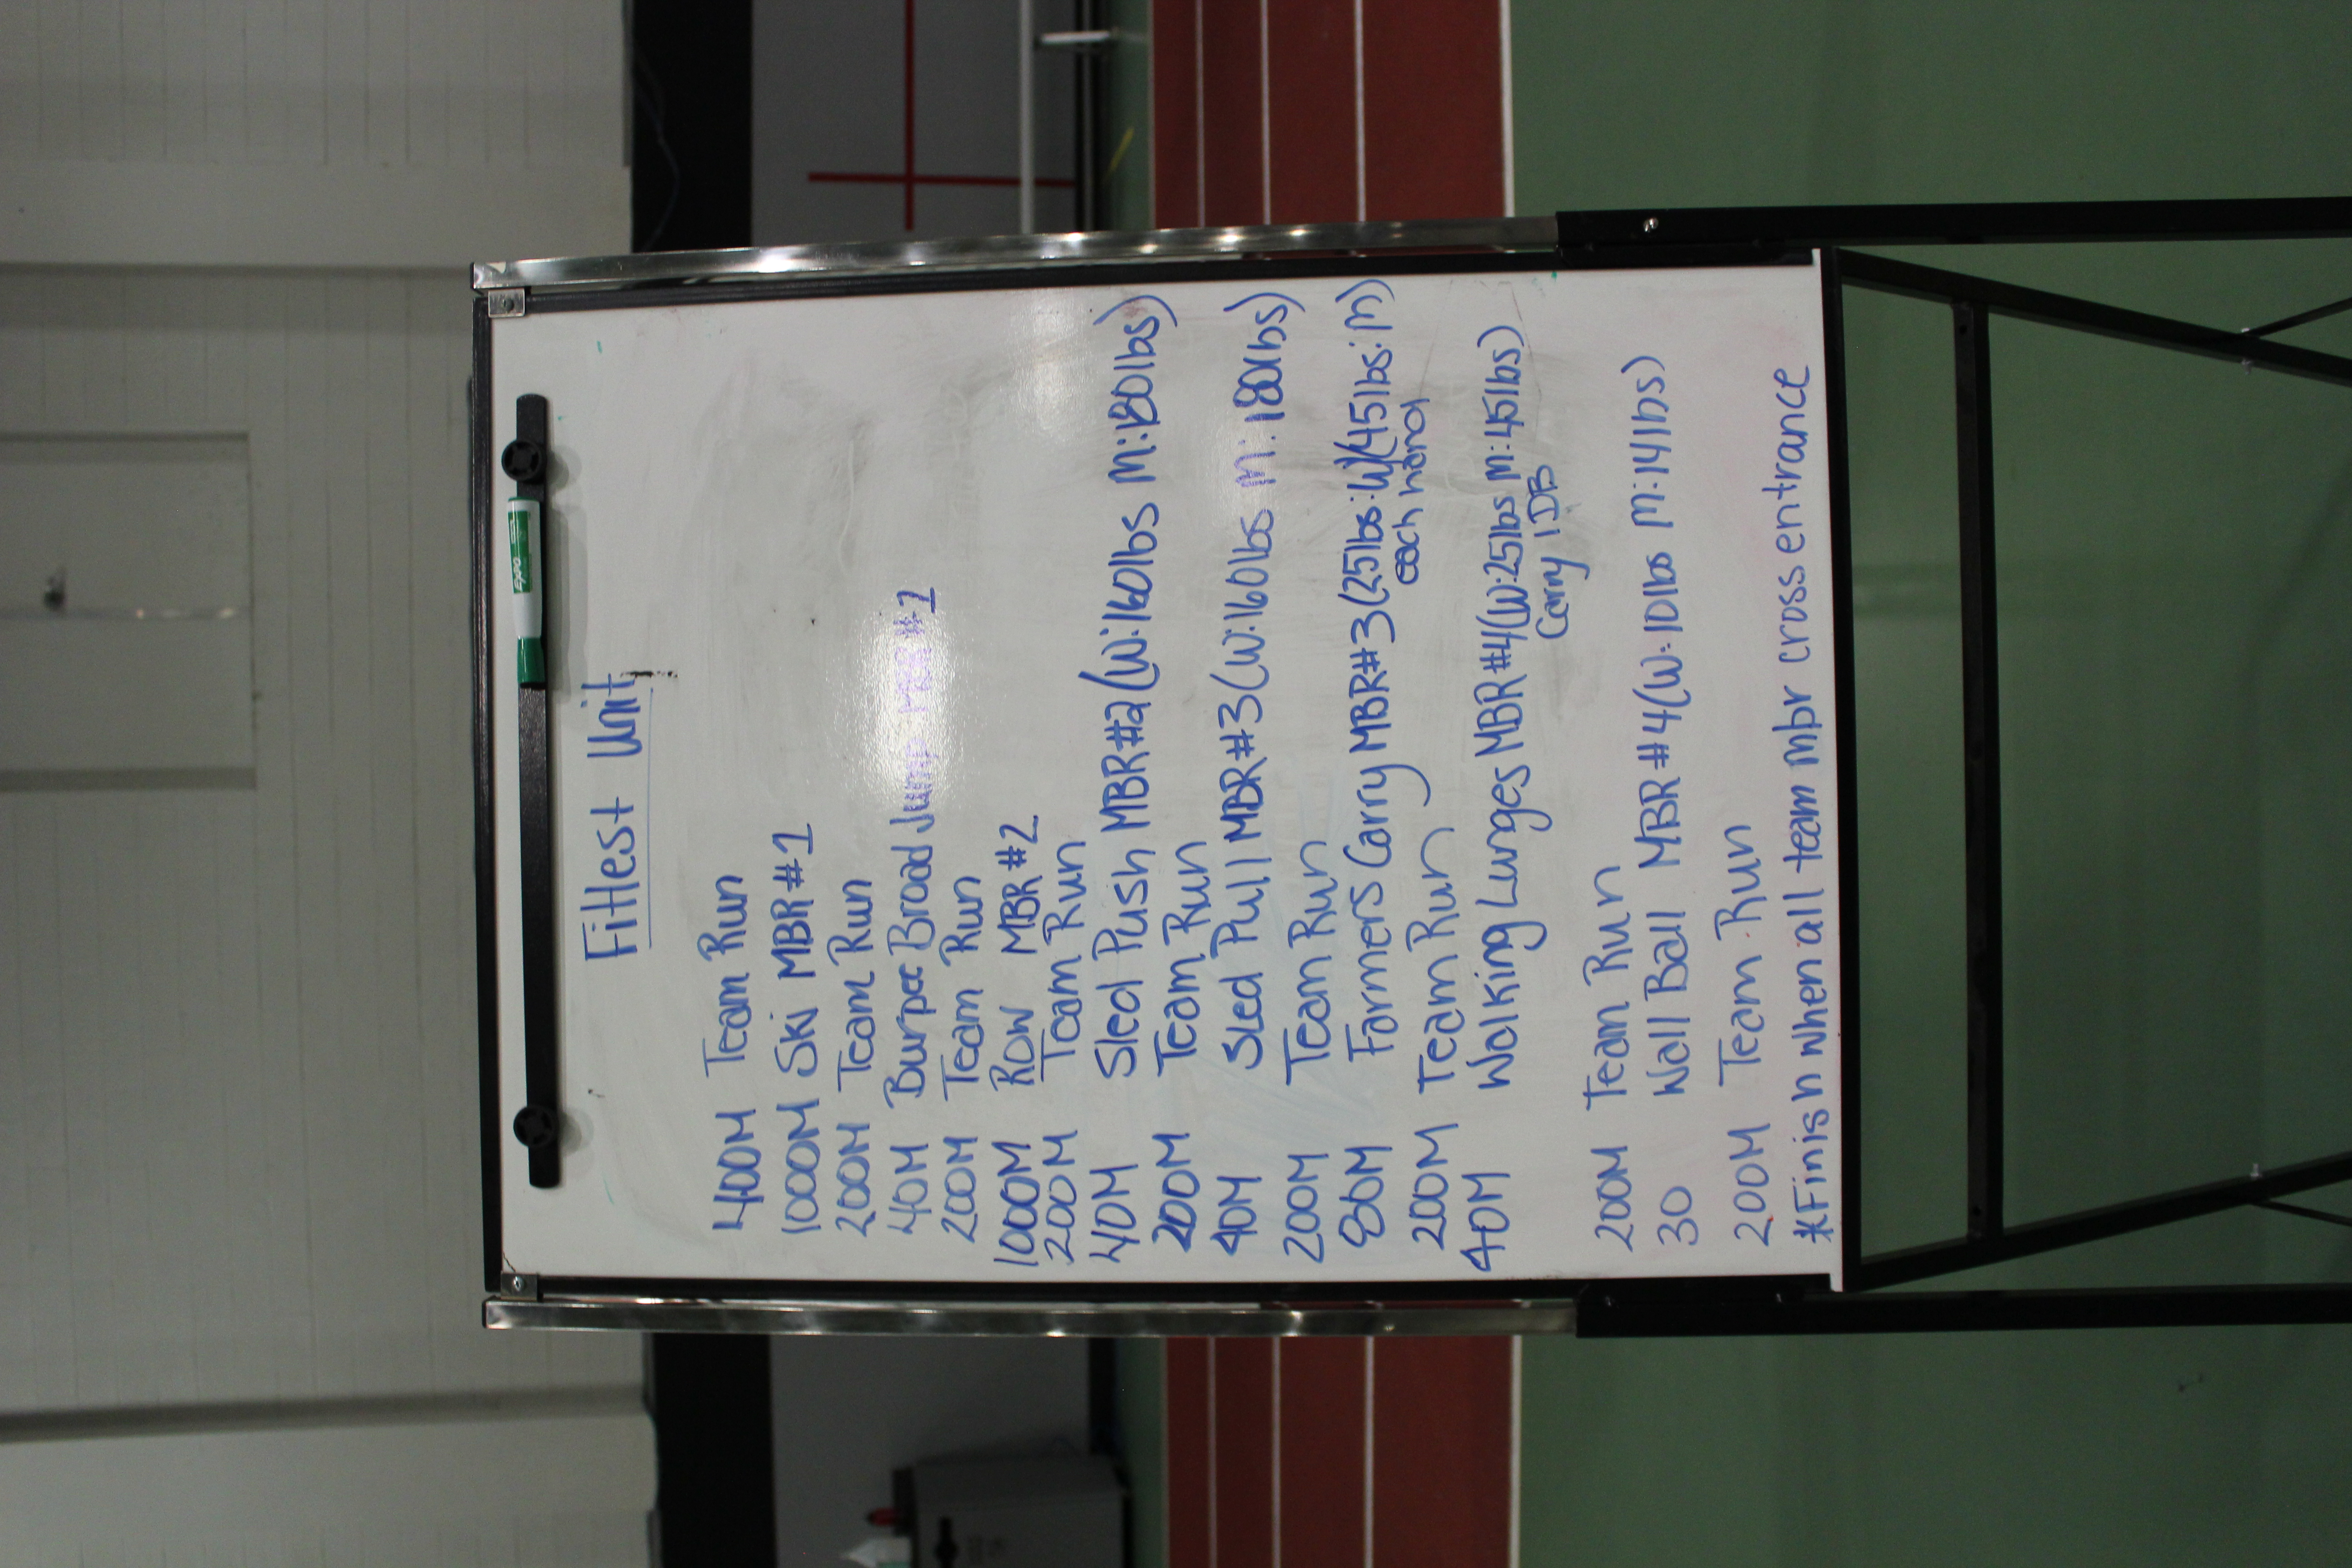 Expo
Fittest Unit
400M Team Run
1000M Ski MBR #1
200M Team Run
40M Burpee Broad Jump MBR #1
200M Team Run
1000M Row MBR #2
200M Team Run
40M Sled Push MBR #2 (W:160lbs M:180lbs)
200M Team Run
40M Sled Pull MBR #3 (W:160lbs M:180lbs)
200M Team Run
80M Farmers Carry MBR #3 (25lbs:W)(45lbs:M)
each hand
200M Team Run
40M Walking Lunges MBR #4 (W:25lbs M:45lbs)
Carry 1 DB
200M Team Run
30 Wall Ball MBR #4 (W:10lbs M:14lbs)
200M Team Run
*Finish when all team mbr cross entrance